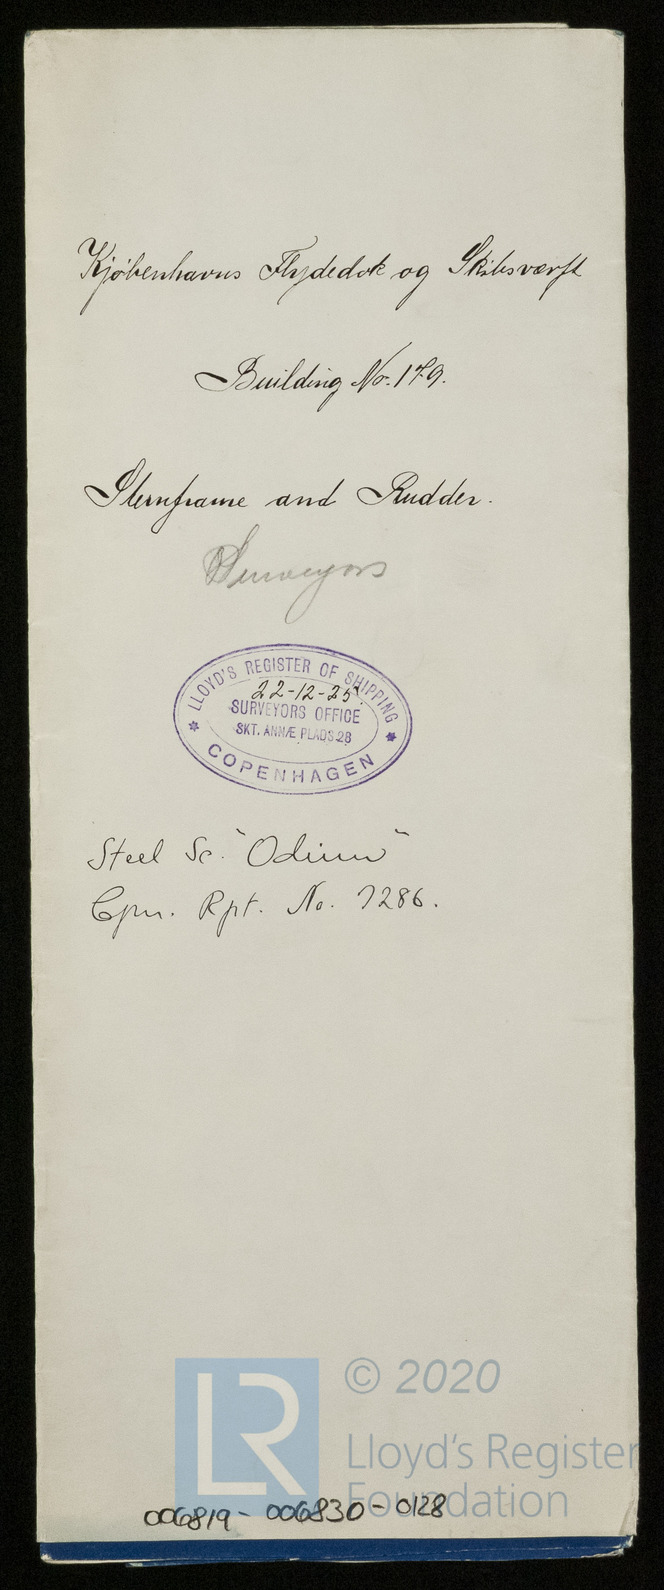 Kjøbenhavns Flydedok og Skibsværft
Building No. 179.
Sternframe and Rudder.
Surveyors
LLOYD'S REGISTER OF SHIPPING
22-12-25
SURVEYORS OFFICE
SKT. ANNÆ PLADS 28
COPENHAGEN
Steel Sc. "Odinn"
Cpn. Rpt. No. 7286.
LR
© 2020
Lloyd's Register
Foundation
006819 - 006830 - 0128